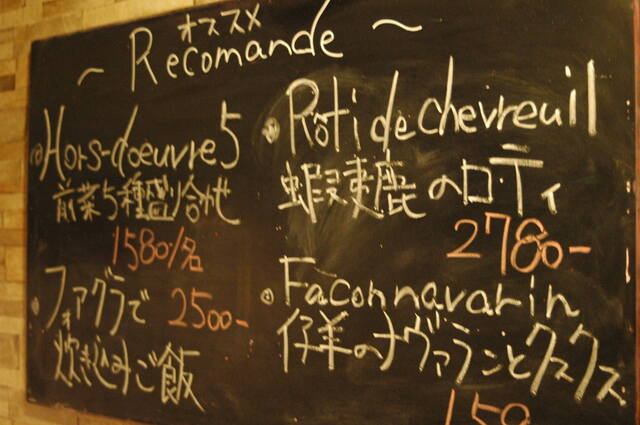 オススメ
~ Recomande ~
Hors-doeuvre5
前菜5種盛り合わせ
1580/名
フォアグラで 2500-
炊き込みご飯
Rôti de chevreuil
蝦夷鹿のロ・ティ
2780-
Facon navarin
仔羊のナヴァランとクスクス